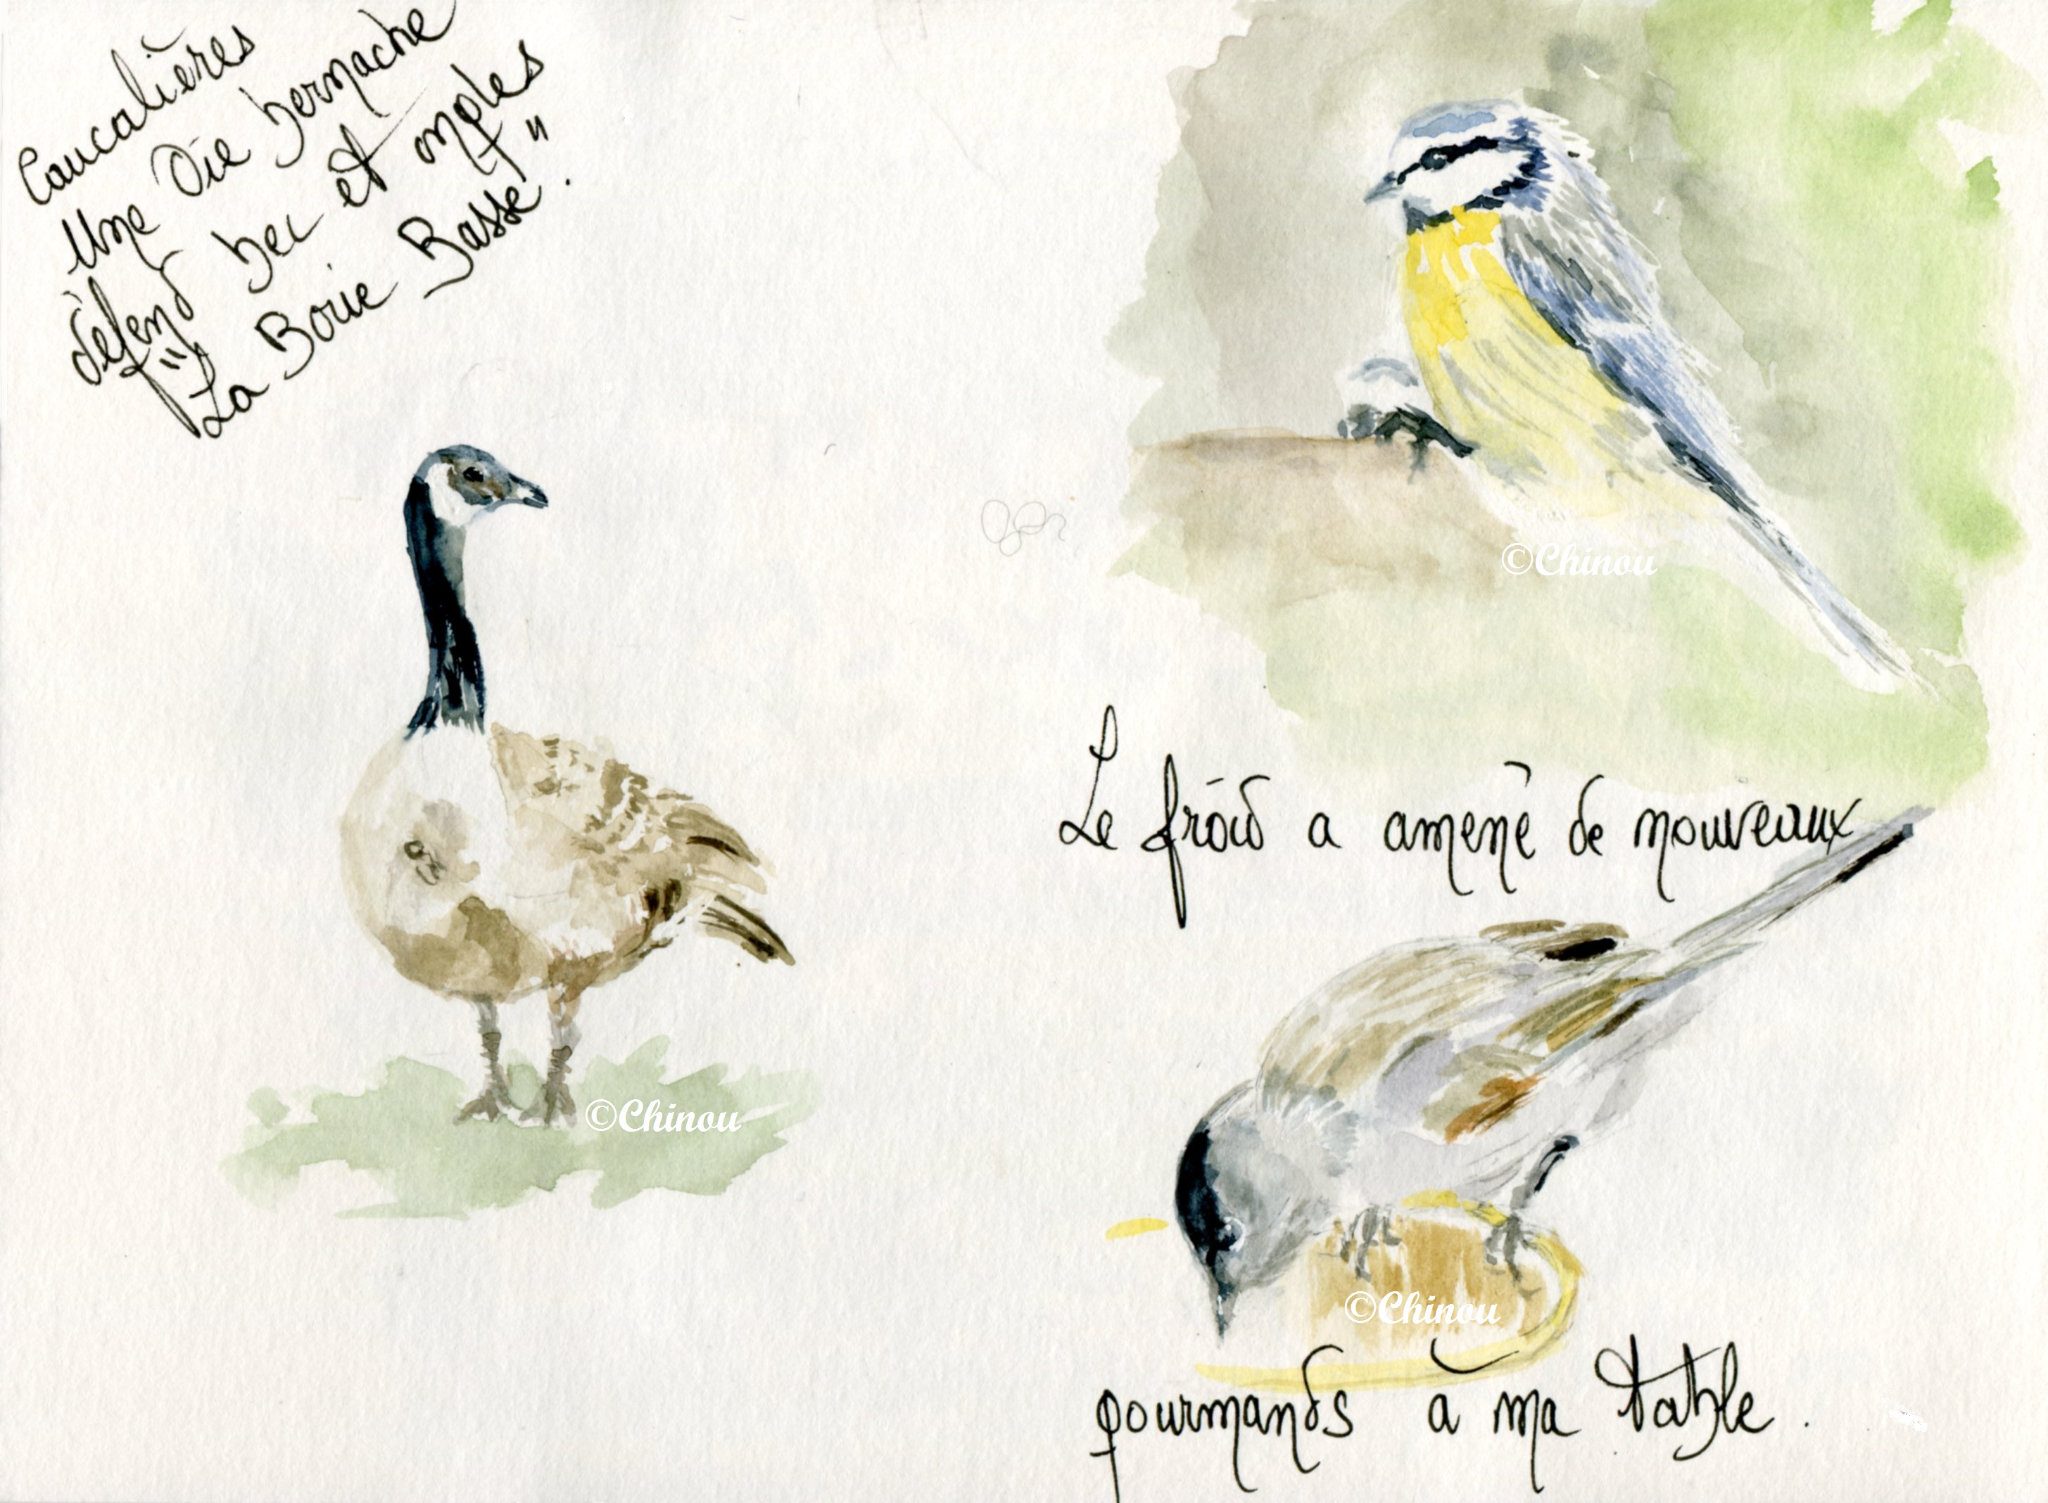 Caucalières
Une Oie bernache
défend bec et ongles
"La Borie Basse".
©Chinou
Le froid a amené de nouveaux
©Chinou
©Chinou
gourmands à ma table.